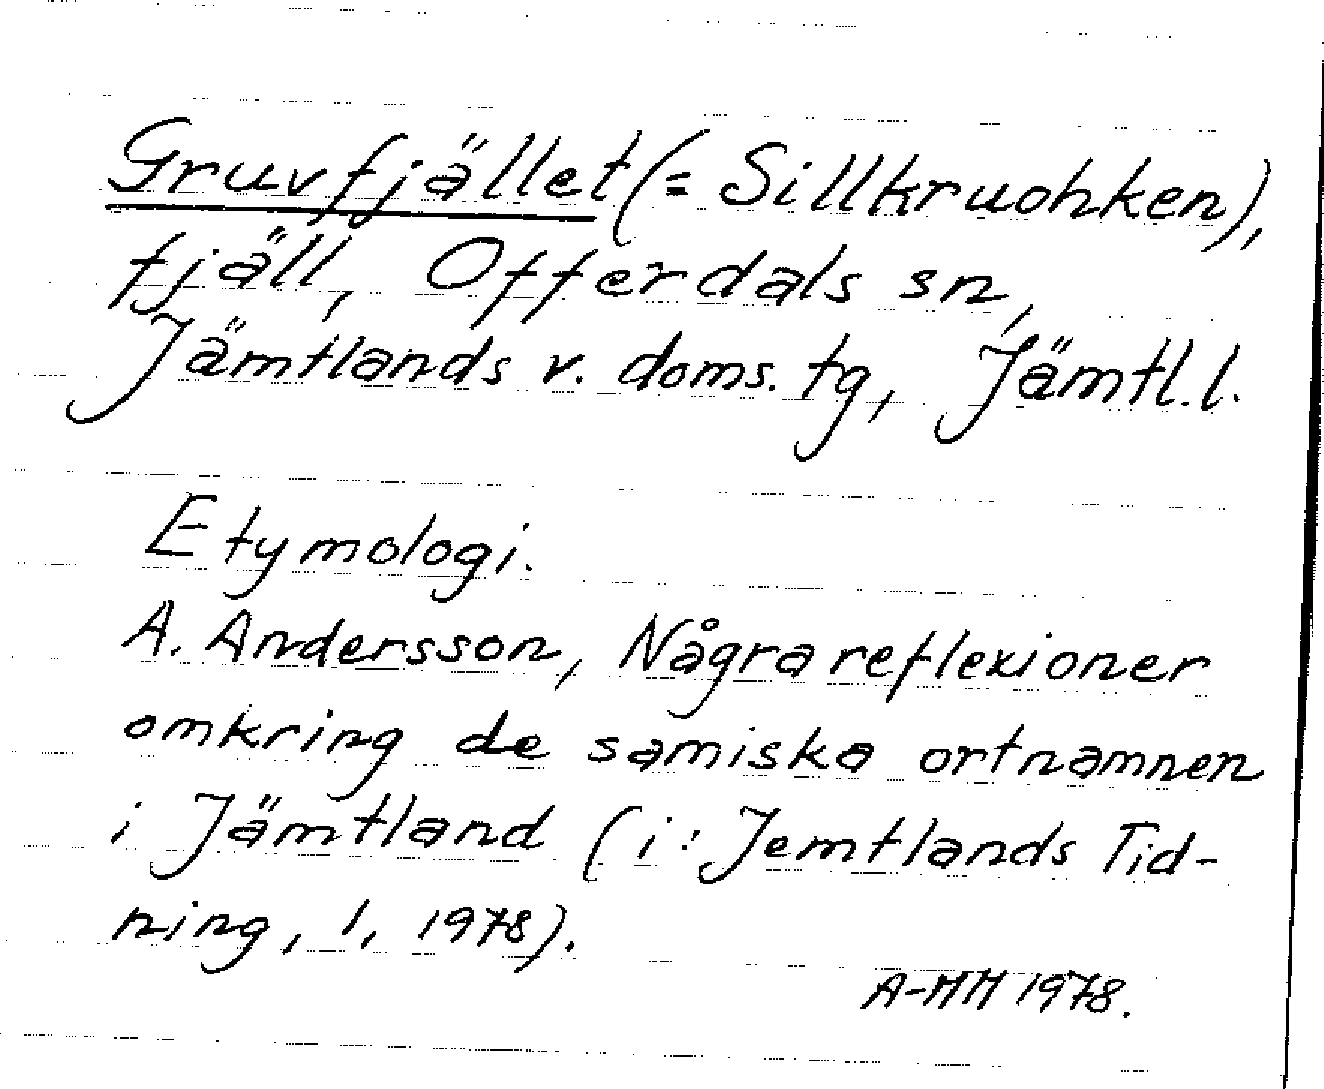 Gruvfjället (= Sillkruohken),
fjäll, Offerdals sn,
Jämtlands v. doms. tg, Jämtl. l.
Etymologi.
A. Andersson, Några reflexioner
omkring de samiska ortnamnen
i Jämtland (i: Jemtlands Tid-
ning, 1, 1978).
A-MM 1978.